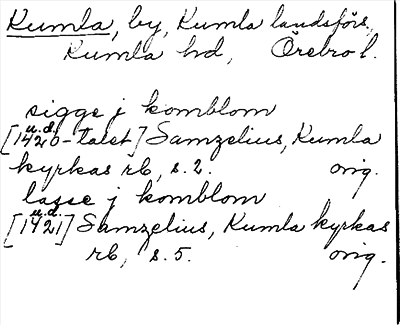 Kumla, by, Kumla landsförs.,
Kumla hd, Örebro l.
sigge j komblom
[u.d. 1420-talet] Samzelius, Kumla
kyrkas rb, s. 2. orig.
lasse j komblom
[u.d. 1421] Samzelius, Kumla kyrkas
rb, s. 5. orig.